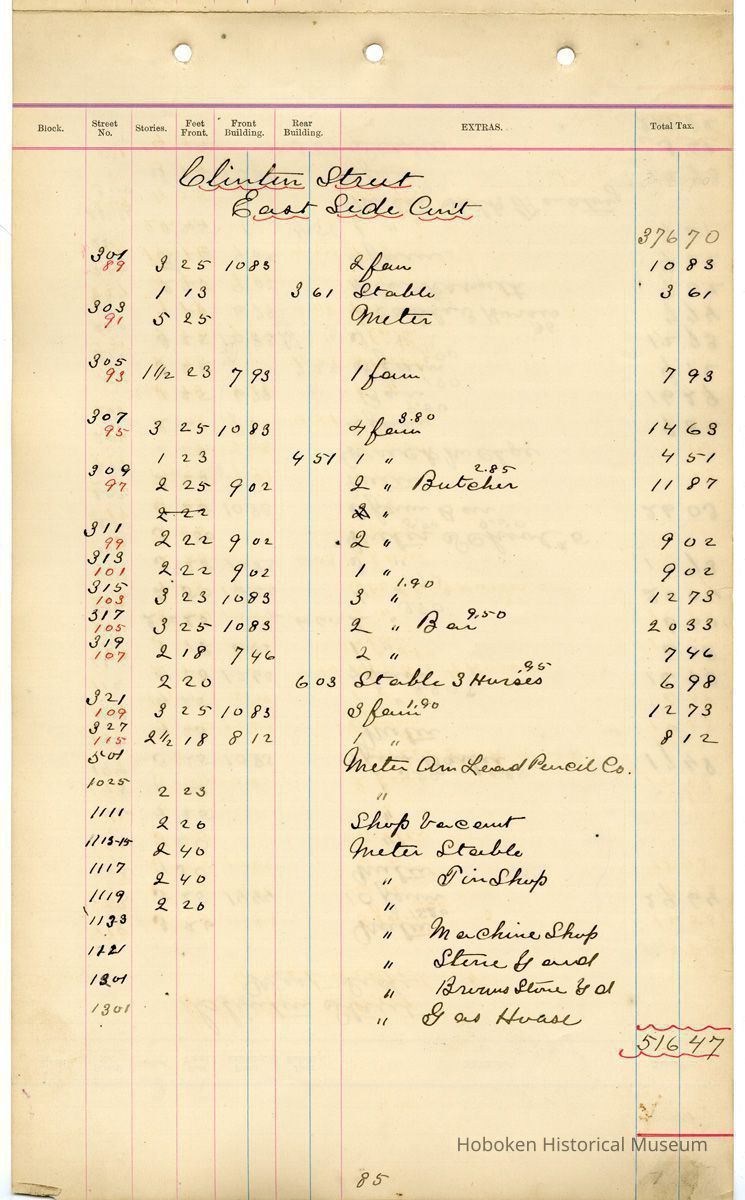 Block. Street No. Stories. Feet Front. Front Building. Rear Building. EXTRAS. Total Tax.
Clinton Street
East Side Con't
376 70
301
89 3 25 10 83 2 fam 10 83
1 13 3 61 Stable 3 61
303
91 5 25 Meter
305
93 1 1/2 23 7 93 1 fam 7 93
307
95 3 25 10 83 4 fam 3.80 14 63
1 23 4 51 1 " 4 51
309
97 2 25 9 02 2 " Butcher 2.85 11 87
2 22 2 "
311
99 2 22 9 02 2 " 9 02
313
101 2 22 9 02 1 " 9 02
315
103 3 23 10 83 3 " 1.90 12 73
317
105 3 25 10 83 2 " Bar 9.50 20 33
319
107 2 18 7 46 2 " 7 46
2 20 6 03 Stable 3 Horses 95 6 98
321
109 3 25 10 83 3 fam 1.90 12 73
327
115 2 1/2 18 8 12 1 " 8 12
501 Meter Am Lead Pencil Co.
1025 2 23 "
1111 2 20 Shop Vacant
1113-15 2 40 Meter Stable
1117 2 40 " Tin Shop
1119 2 20 "
1133 " Machine Shop
1121 " Stone Yard
1301 " Brown Stone Yd
1301 " Gas House
516 47
85
Hoboken Historical Museum